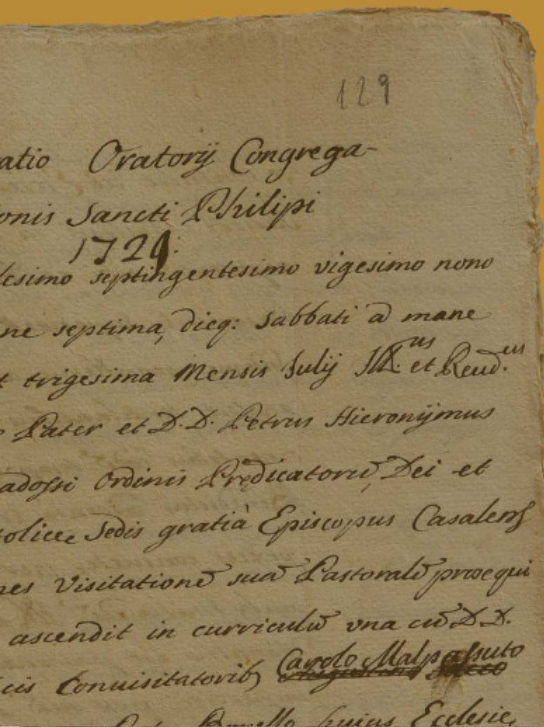 129
atio Oratorij Congrega-
onis Sancti Philipi
1729.
lesimo septingentesimo vigesimo nono
ne septima, dieq: Sabbati a mane
t trigesima Mensis Julij Ill.us et Reud.us
Pater et D.D. Petrus Hieronijmus
adossi Ordinis Predicatorū, Dei et
tolice Sedis gratia Episcopus Casalens
nes Visitationē suā Pastoralē proequi
ascendit in curriculū vna cū D.D.
cis Conuisitatorib Carolo Malpassuto
Bonello huius Ecclesie